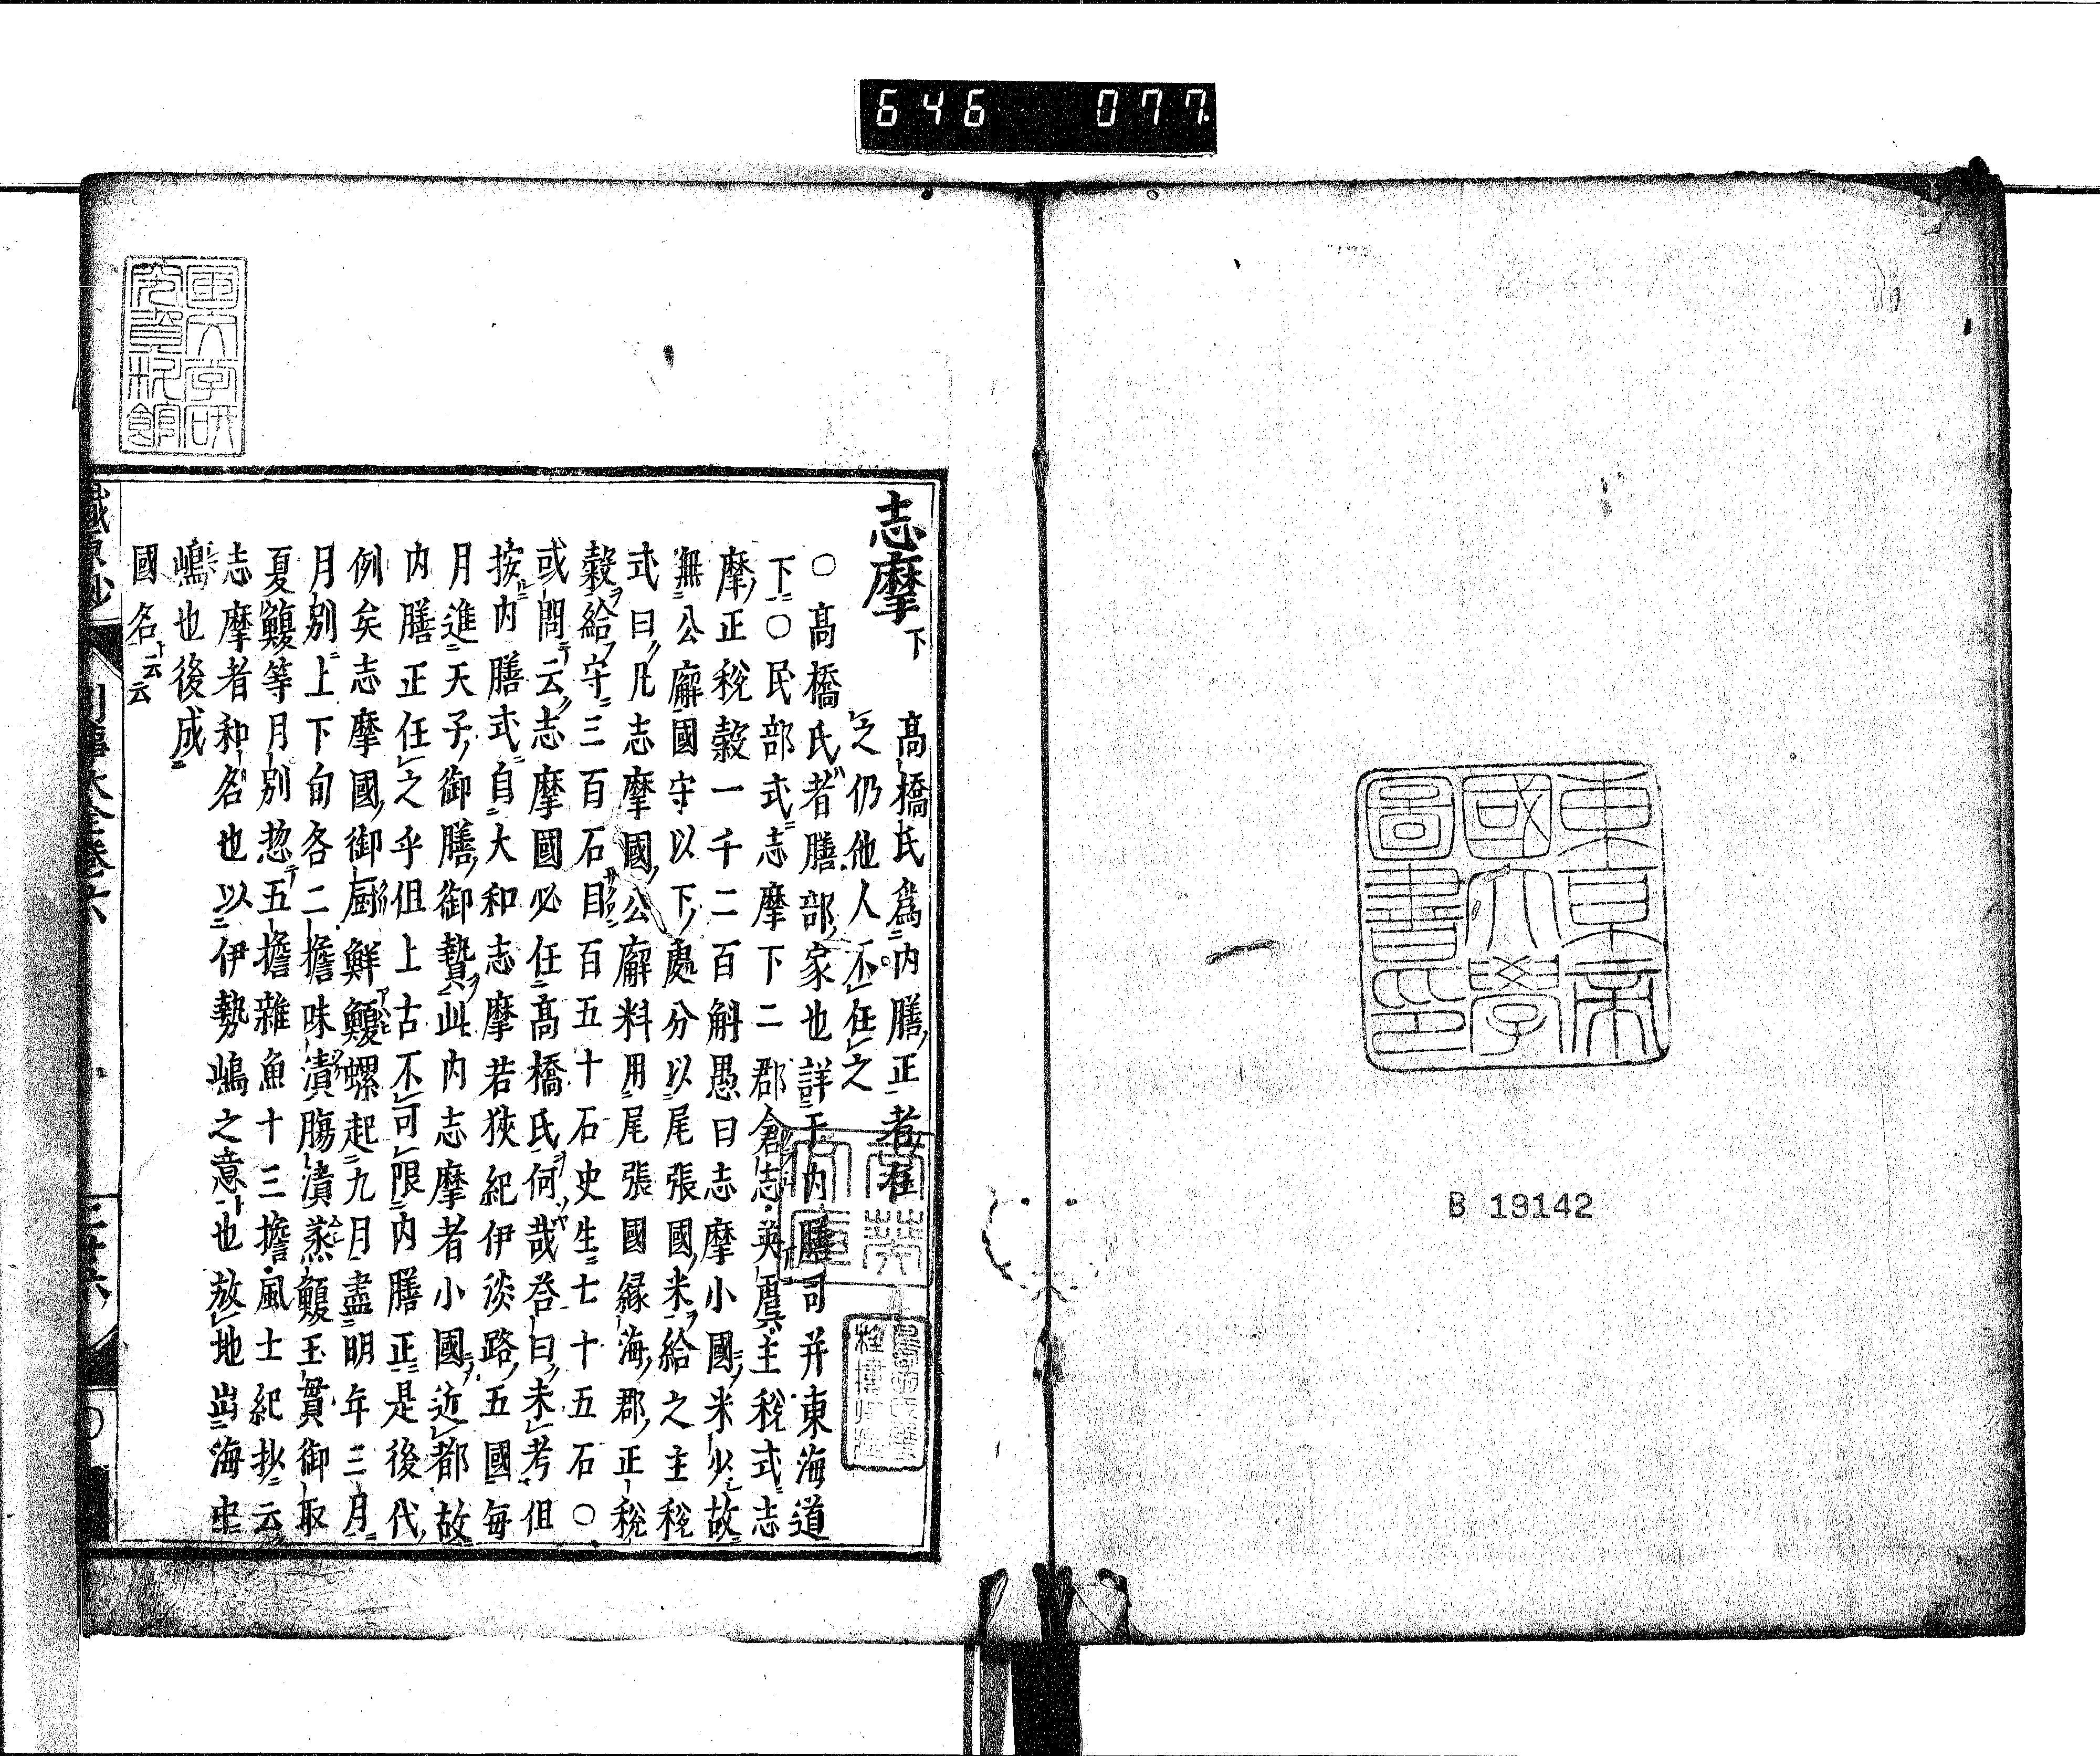 646 077.
東京帝
國大學
圖書印
B 19142
志摩下 高橋氏爲内膳正者任
之仍他人不任之
○高橋氏者膳部家也詳于内膳司并東海道
下○民部式志摩下二郡答志英虞主税式志
摩正税穀一千二百斛愚曰志摩小國米少故
無公廨國守以下處分以尾張國米給之主税
式曰凡志摩國公廨料用尾張國縁海郡正税
穀給守三百石目百五十石史生七十五石○
或問云志摩國必任高橋氏何哉答曰未考但
按内膳式自大和志摩若狹紀伊淡路五國每
月進天子御膳御贄此内志摩者小國近都故
内膳正任之乎但上古不可限内膳正是後代
例矣志摩國御厨鮮鰒螺起九月盡明年三月
月別上下旬各二擔味漬膓漬蒸鰒玉貫御取
夏鰒等月別惣五擔雜魚十三擔風土紀抄云
志摩者和名也以伊勢嶋之意也放地出海中
嶋也後成
國名云云